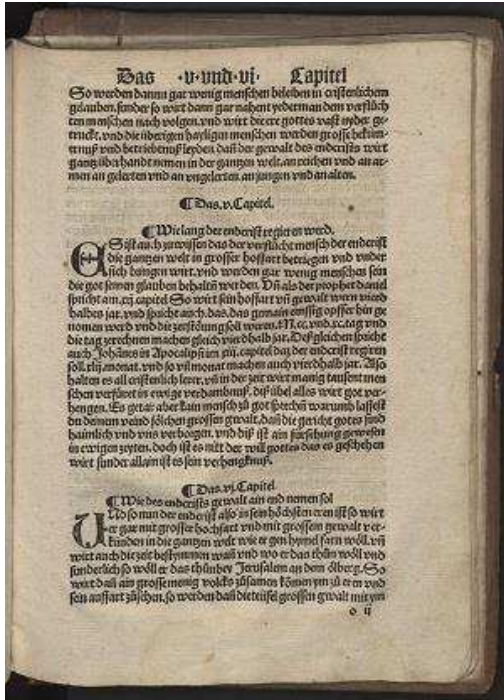 Das ·v·vnd·vj· Capitel
So werden dannn gar wenig menschen beleiben in cristenlichem
gelauben. sunder so wirt dann gar nahent yederman dem verflůch
ten menschen nach volgen. vnd wirt die ere gottes vast nyder ge-
truckt. vnd die überigen hayligen menschen werden grosse bekům
ernuß vnd betriebenuß leyden. dañ der gewalt des endcrists wirt
gantz überhandt nemen in der gantzen welt. an reichen vnd an ar-
men an gelerten vnd an vngelerten. an jungen vnd an alten.
¶ Das .v. Capitel.
¶ Wie lang der endcrist regieren werd.
ES ist auch zů wissen das der verflůcht mensch der endcrist
die gantzen welt in grosser hoffart betriegen vnd vnder
sich bringen wirt. vnd werden gar wenig menschen sein
die got seinen glauben behaltñ werden. Vñ als der prophet daniel
spricht am .xij. capitel So wirt sein hoffart vñ gewalt wern vierd
halbes jar. vnd spricht auch. das. das gemain emssig opffer hin ge
nomen werd vnd die zerstöung soll weren. M. cc. vnd. xc. tag vnd
die tag zerechnen machen gleich vierdhalb jar. Deßgleichen spricht
auch Johãnes in Apocalipsi im xiij. capitel daz der endcrist regiren
soll. xlij. monat. vnd so vil monat machen auch vierdhalb jar. Also
halten es all cristenlich lerer. vñ in der zeit wirt manig tausent men
schen verfüret in ewige verdambnuß. diß übel alles wirt got ver-
hengen. Es getar aber kain mensch zů got sprechñ warumb lassest
du deinem veind sölchen grossen gwalt. dañ die gericht gottes sind
haimlich vnd vns verborgen. vnd diß ist ain fürsehung gewesen
in ewigen zeyten. doch ist es nitt der will gottes das es geschehen
wirt sunder allain ist es sein verhengknuß.
¶ Das .vi. Capitel
¶ Wie des endcrists gewalt ain end nemen sol
UNd so nun der endcrist also in sein höchsten eren ist so wirt
er gar mit grosser hochfart vnd mit grossem gewalt ver-
künden in die gantzen welt wie er gen hymel farn wöll. vñ
wirt auch die zeit bestymmen wañ vnd wo er das thůn wöll vnd
sunderlich so wöll er das thůn bey Jerusalem an dem ölberg. So
wirt dañ ain grosse menig volcks zůsamen kömen ym zů eren vnd
sein auffart zůsehen. so werden dañ die teüfel grossen gwalt mit ym
o ij